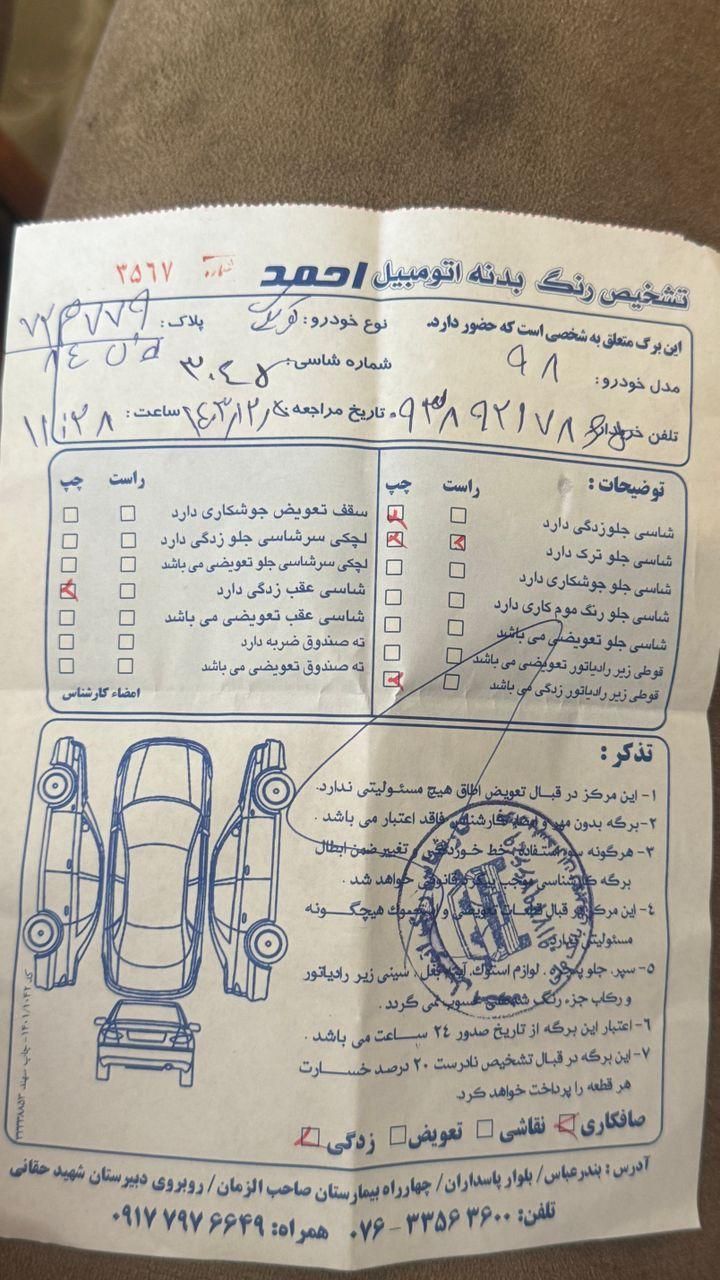 تشخیص رنگ بدنه اتومبیل احمد شماره ۳۵۶۷
این برگ متعلق به شخصی است که حضور دارد.
نوع خودرو:
پلاک: ۷۷۹ ۷۲
مدل خودرو: ۹۸
شماره شاسی:
تلفن خریدار:
تاریخ مراجعه:
ساعت: ۱۱:۳۸
توضیحات: راست چپ
شاسی جلو زدگی دارد
شاسی جلو ترک دارد
شاسی جلو جوشکاری دارد
شاسی جلو رنگ موم کاری دارد
شاسی جلو تعویضی می باشد
قوطی زیر رادیاتور تعویضی می باشد
قوطی زیر رادیاتور زدگی می باشد
راست چپ
سقف تعویض جوشکاری دارد
لچکی سرشاسی جلو زدگی دارد
لچکی سرشاسی جلو تعویضی می باشد
شاسی عقب زدگی دارد
شاسی عقب تعویضی می باشد
ته صندوق ضربه دارد
ته صندوق تعویضی می باشد
امضاء کارشناس
تذکر:
۱- این مرکز در قبال تعویض اطاق هیچ مسئولیتی ندارد.
۲- برگه بدون مهر و امضا کارشناس فاقد اعتبار می باشد.
۳- هرگونه سوء استفاده، خط خوردگی و تغییر ضمن ابطال
برگه کارشناسی موجب پیگرد قانونی خواهد شد.
٤- این مرکز در قبال قطعات تعویضی و هیچگونه
مسئولیتی ندارد.
۵- سپر، جلو پنجره، لوازم استوک، آینه بغل، سینی زیر رادیاتور
و رکاب جزء رنگ محسوب نمی گردد.
۶- اعتبار این برگه از تاریخ صدور ۲٤ ساعت می باشد.
۷- این برگه در قبال تشخیص نادرست ۲۰ درصد خسارت
هر قطعه را پرداخت خواهد کرد.
صافکاری نقاشی تعویض زدگی
آدرس: بندرعباس/ بلوار پاسداران/ چهارراه بیمارستان صاحب الزمان/ روبروی دبیرستان شهید حقانی
تلفن: ۳۶۰۰ ۳۳۵۶ - ۰۷۶ همراه: ۶۶۴۹ ۷۹۷ ۰۹۱۷